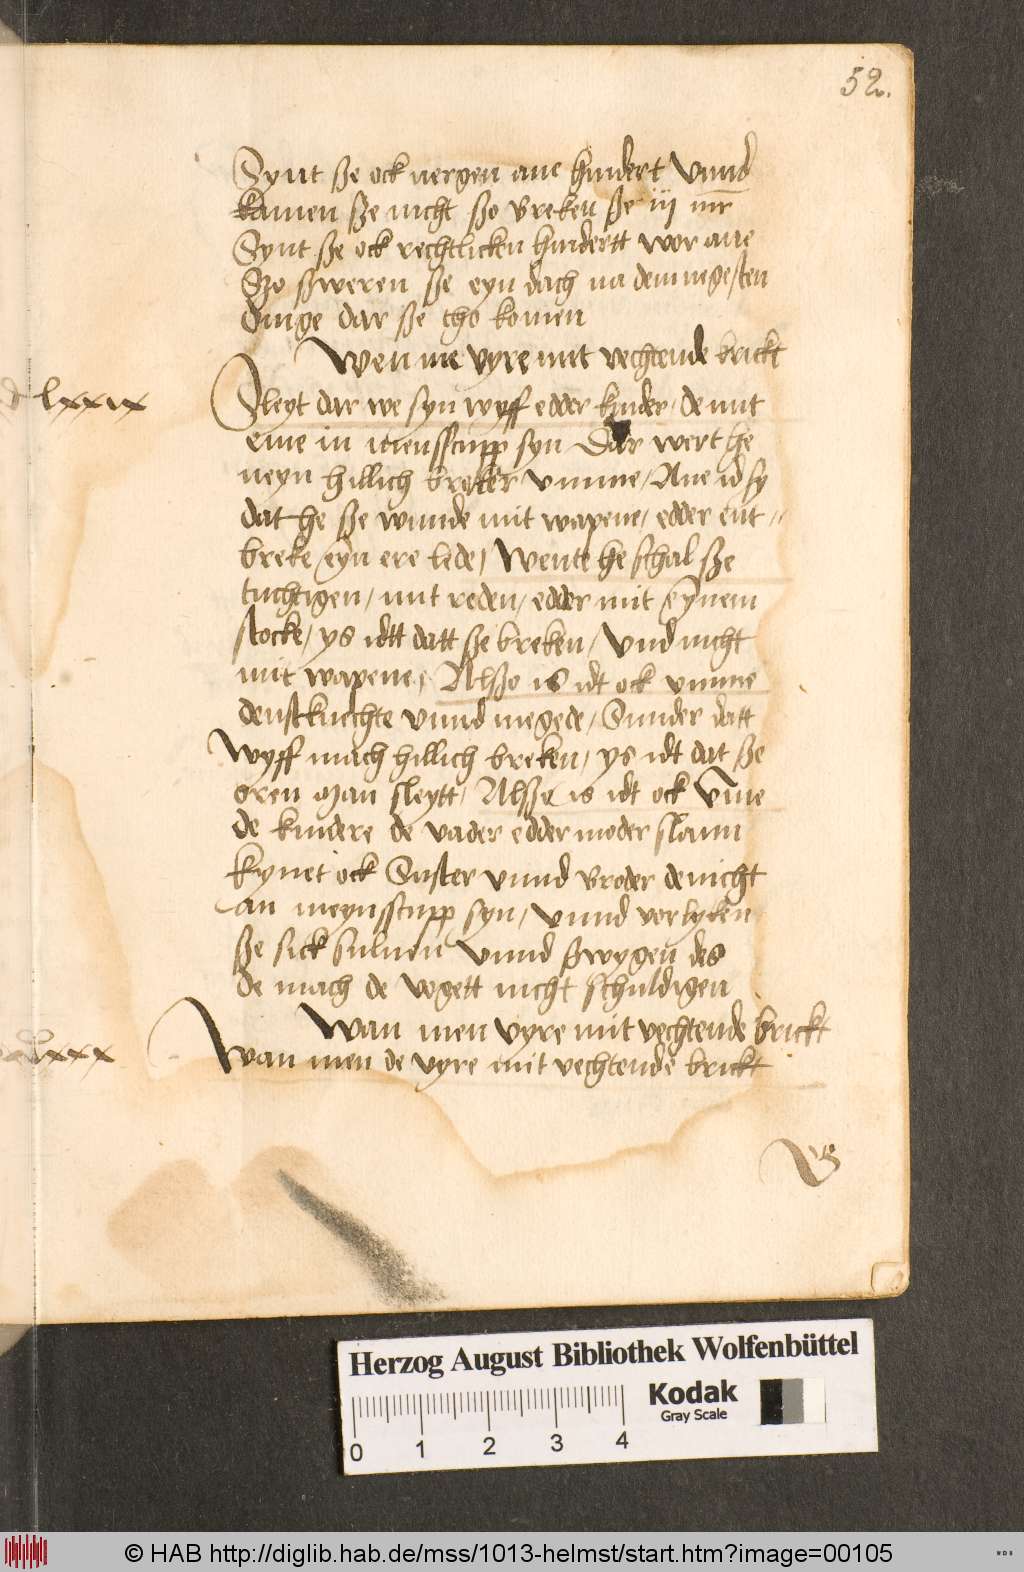 52.
Synt ße ock nergen ane hindert Vnnd
kamen ße nicht ßo breken ße iij mr
Synt ße ock rechtlicken hindertt wor ane
Szo ßweren ße eyn dach na dem negesten
dinge dar ße tho komen
Wen me vyre mit vechtende brickt
lxxix
Sleyt dar we syn wyff edder kinder, de mit
eme in mensscupp syn Dar wert he
neyn hillich breker vmme, Ane id sy
dat he ße wunde mit wapene, edder ent//
breke eyn ere lede, Wente he schal ße
tuchtigen, mit reden, edder mit eynem
stocke, ys idtt datt ße breken, Vnd nicht
mit wapene, Alßo is idt ock vmme
denstknechte vnnd megede, Sunder datt
Wyff mach hillich breken, ys idt dat ße
oren man sleytt, Alßo is idt ock vmme
de kindere de vader edder moder slann
Kynet ock Suster vnnd broder de nicht
an meynsscupp syn, vnnd vorlyken
ße sick suluen vnnd ßwygen des
de mach de vogett nicht schuldigen
Wan men vyre mit vechtende brickt
lxxx
Wan men de vyre mit vechtende brickt
Herzog August Bibliothek Wolfenbüttel
Kodak
Gray Scale
0 1 2 3 4
© HAB http://diglib.hab.de/mss/1013-helmst/start.htm?image=00105